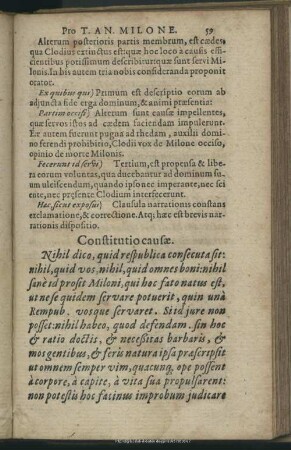 Pro T. AN. MILONE. 59
Alterum posterioris partis membrum, est cædes
qua Clodius extinctus estquæ hoc loco à causis effi
cientibus potissimum describiturquæ sunt servi Mi
lonis. In his autem tria nobis consideranda proponit
orator.
Ex quibus qui) Primum est descriptio eorum ab
adjuncta fide erga dominum, & animi præsentia:
Partim occisi) Alterum sunt causæ impellentes,
quæ servos istos ad cædem faciendam impulerunt.
Eæ autem fuerunt pugna ad rhedam, auxilii domi-
no ferendi prohibitio, Clodii vox de Milone occiso,
opinio de morte Milonis.
Fecerunt id servi) Tertium, est propensa & libe
ra eorum voluntas, qua ducebantur ad dominum su
um ulciscendum, quando ipso nec imperante, nec sci
ente, nec præsente Clodium intersecerunt.
Hæc, sicut exposui) Clausula narrationis constans
exclamatione, & correctione. Atq; hæc est brevis nar
rationis dispositio.
Constitutio causæ.
Nihil dico, quid respublica consecuta sit:
nihil, quid vos, nihil, quid omnes boni: nihil
sanè id prosit Miloni, qui hoc fato natus est,
ut ne se quidem servare potuerit, quin unà
Rempub. vosque servaret. Si id jure non
posset: nihil habeo, quod defendam. sin hoc
& ratio doctis, & necessitas barbaris, &
mos gentibus, & feris natura ipsa præscripsit
ut omnem semper vim, quacunq, ope possent
à corpore, à capite, à vita sua propulsarent:
non potestis hoc facinus improbum judicare